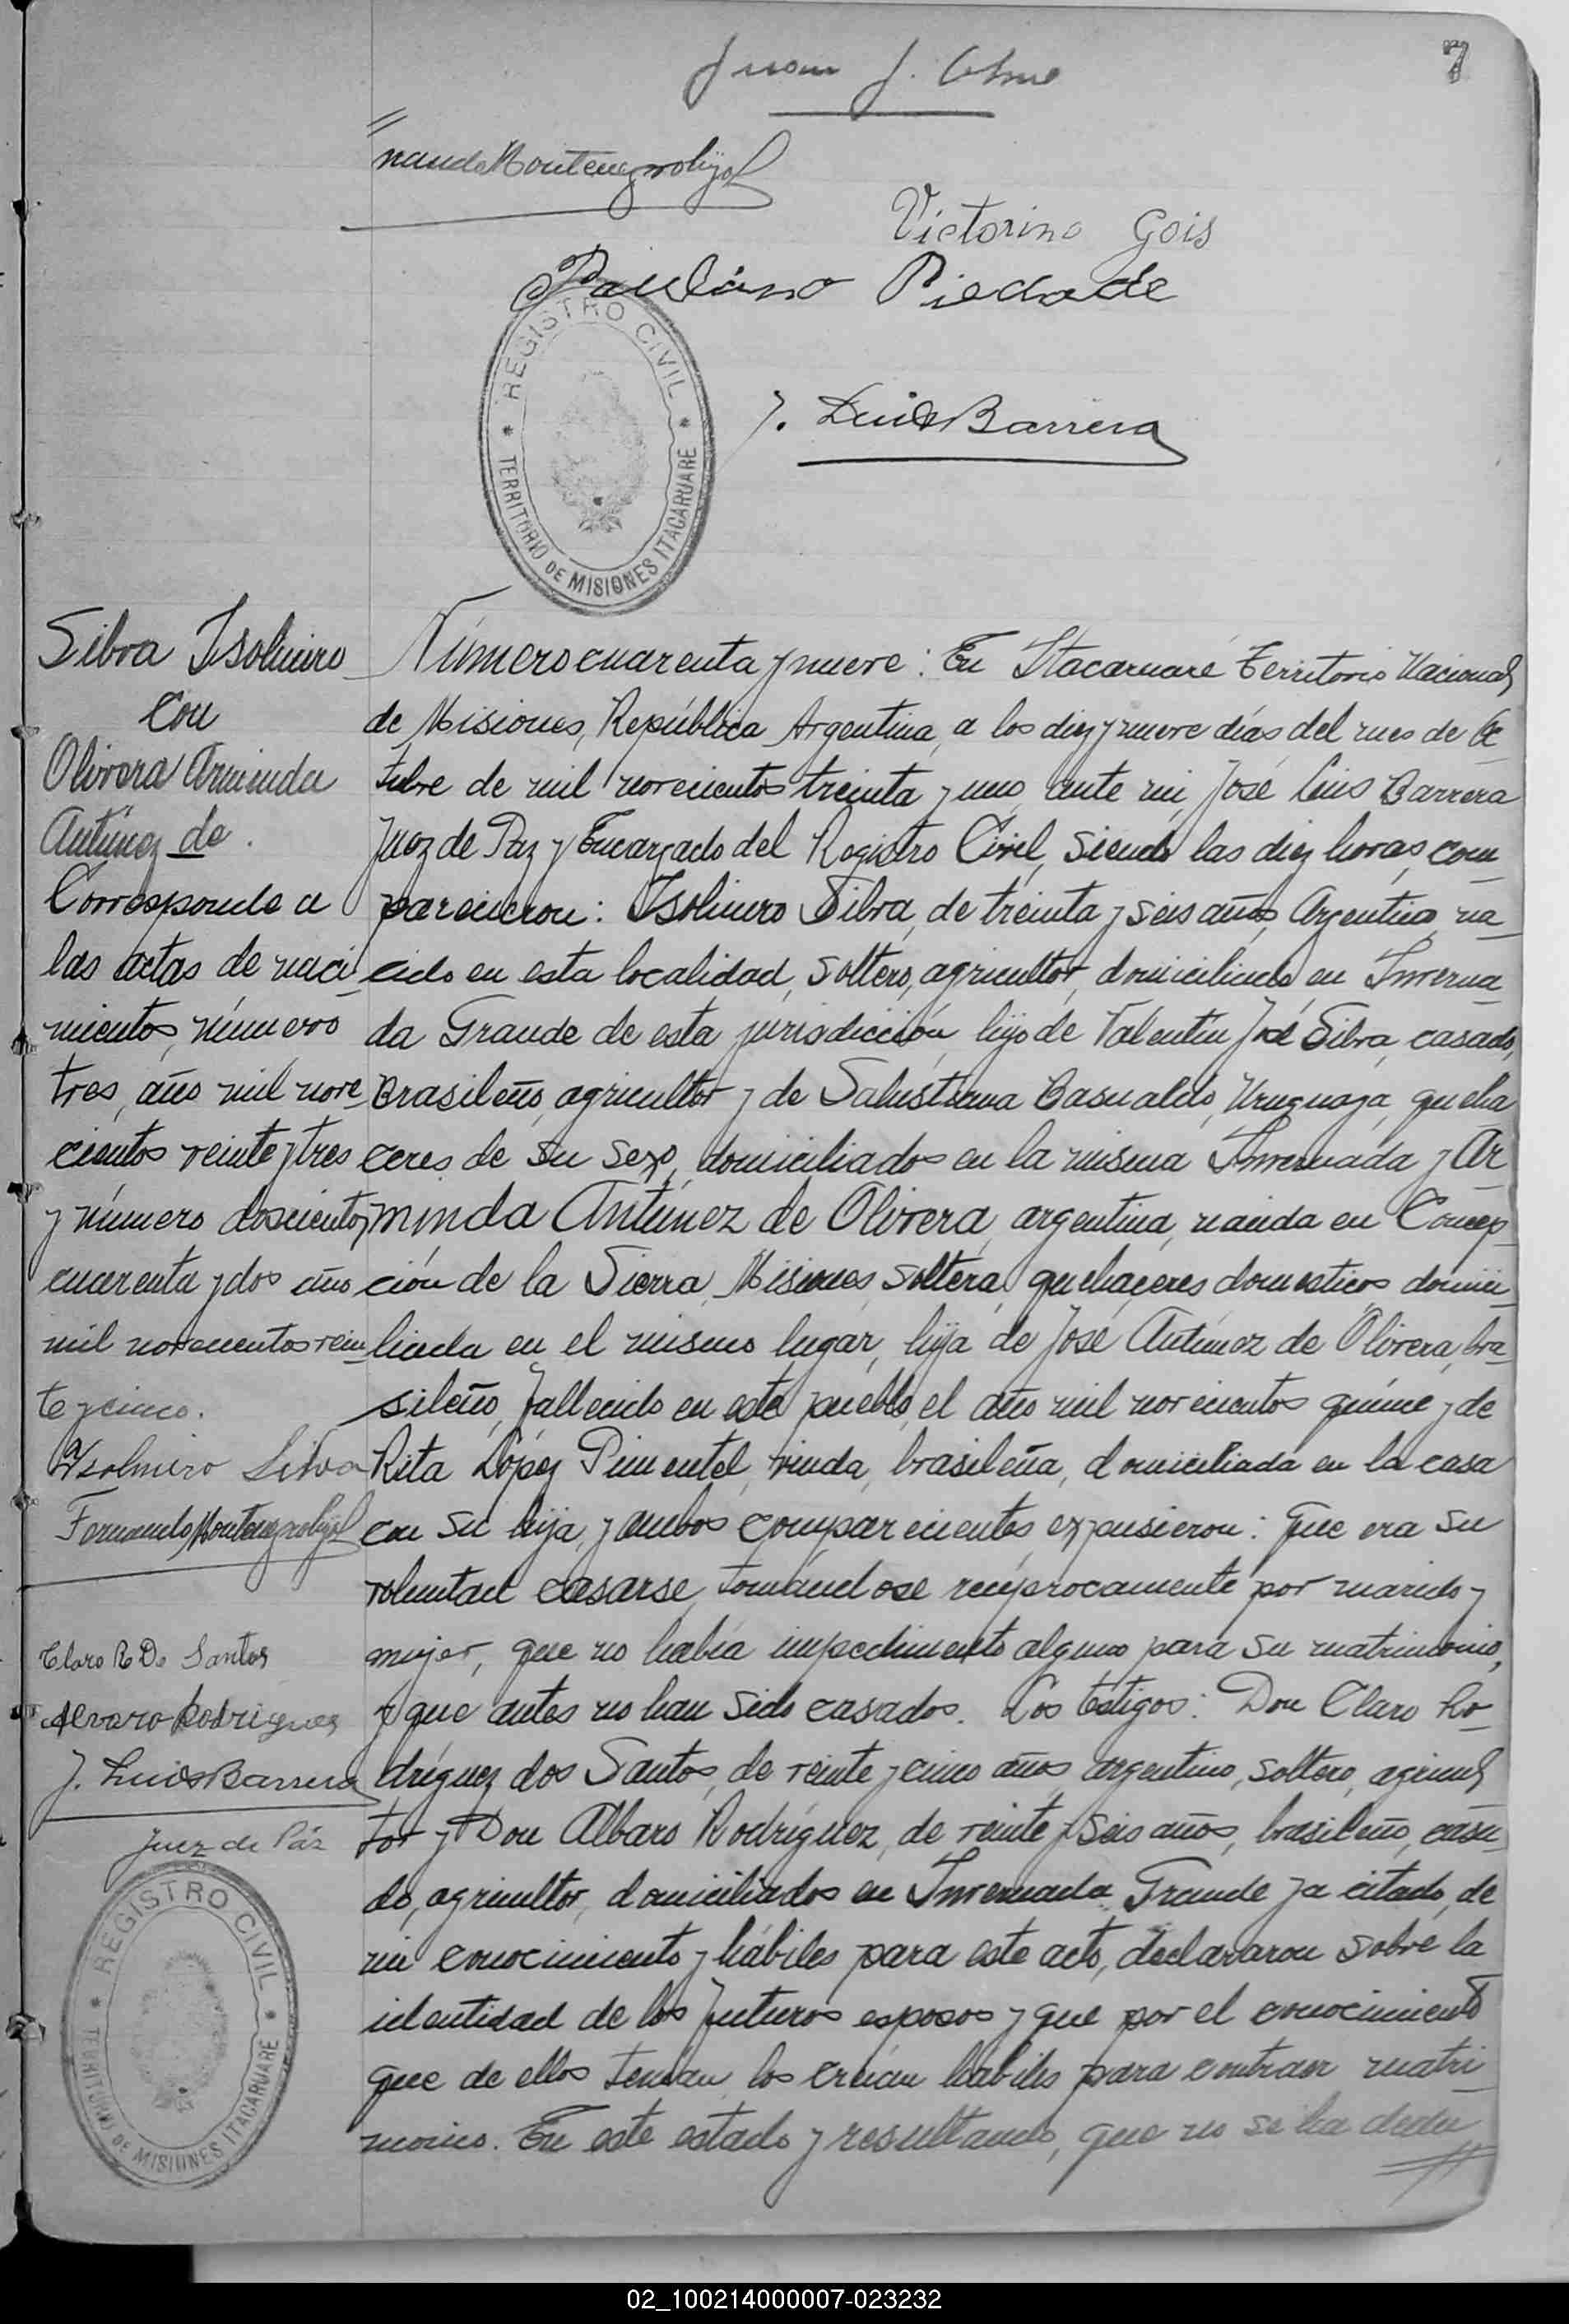 7
Juan J.
nando Montenegro hijo
Victorino Gois
Pauliano Piedade
REGISTRO CIVIL
TERRITORIO DE MISIONES ITACARUARE
J. Luis Barrera
Silva Isolinero
con
Olivera Arminda
Antúnez de.
Corresponde a
las actas de naci
mientos, número
tres, año mil nove
cientos veinte y tres
y número doscientos
cuarenta y dos año
mil novecientos vein
te y cinco.
Isolinero Silva
Fernando Montenegro hijo
Claro R Do Santos
Alvaro Rodrigues
J. Luis Barrera
Juez de Páz
REGISTRO CIVIL
TERRITORIO DE MISIONES ITACARUARE
Número cuarenta y nueve: En Itacaruaré Territorio Nacional
de Misiones, República Argentina, a los diez y nueve días del mes de Oc
tubre de mil novecientos treinta y uno, ante mi, José Luis Barrera
Juez de Paz y Encargado del Registro Civil, siendo las diez horas, com
parecieron: Isolinero Silva, de treinta y seis años, Argentino, na
cido en esta localidad, soltero, agricultor, domiciliado en Inverna
da Grande de esta jurisdicción, hijo de Valentín José Silva, casado,
Brasileño, agricultor y de Salustiana Basualdo, Uruguaya, queha
ceres de su sexo, domiciliados en la misma Invernada y Ar
minda Antúnez de Olivera, argentina, nacida en Concep
ción de la Sierra, Misiones, soltera, quehaceres domesticos domici
liada en el mismo lugar, hija de José Antúnez de Olivera, bra
sileño, fallecido en este pueblo, el año mil novecientos quince y de
Rita López Pimentel, viuda, brasileña, domiciliada en la casa
con su hija, y ambos comparecientes expusieron: Que era su
voluntad casarse, tomándose recíprocamente por marido y
mujer, que no había impedimento alguno para su matrimonio,
y que antes no han sido casados. Los testigos: Don Claro Ro
dríguez dos Santos, de veinte y cinco años, argentino, soltero, agricul
tor y Don Albaro Rodríguez, de veinte y seis años, brasileño, casa
do, agricultor, domiciliados en Invernada Grande ya citado, de
mi conocimiento y hábiles para este acto, declararon sobre la
identidad de los futuros esposos y que por el conocimiento
que de ellos tenían los creían habiles para contraer matri
monio. En este estado y resultando, que no se ha dedu
02_100214000007-023232